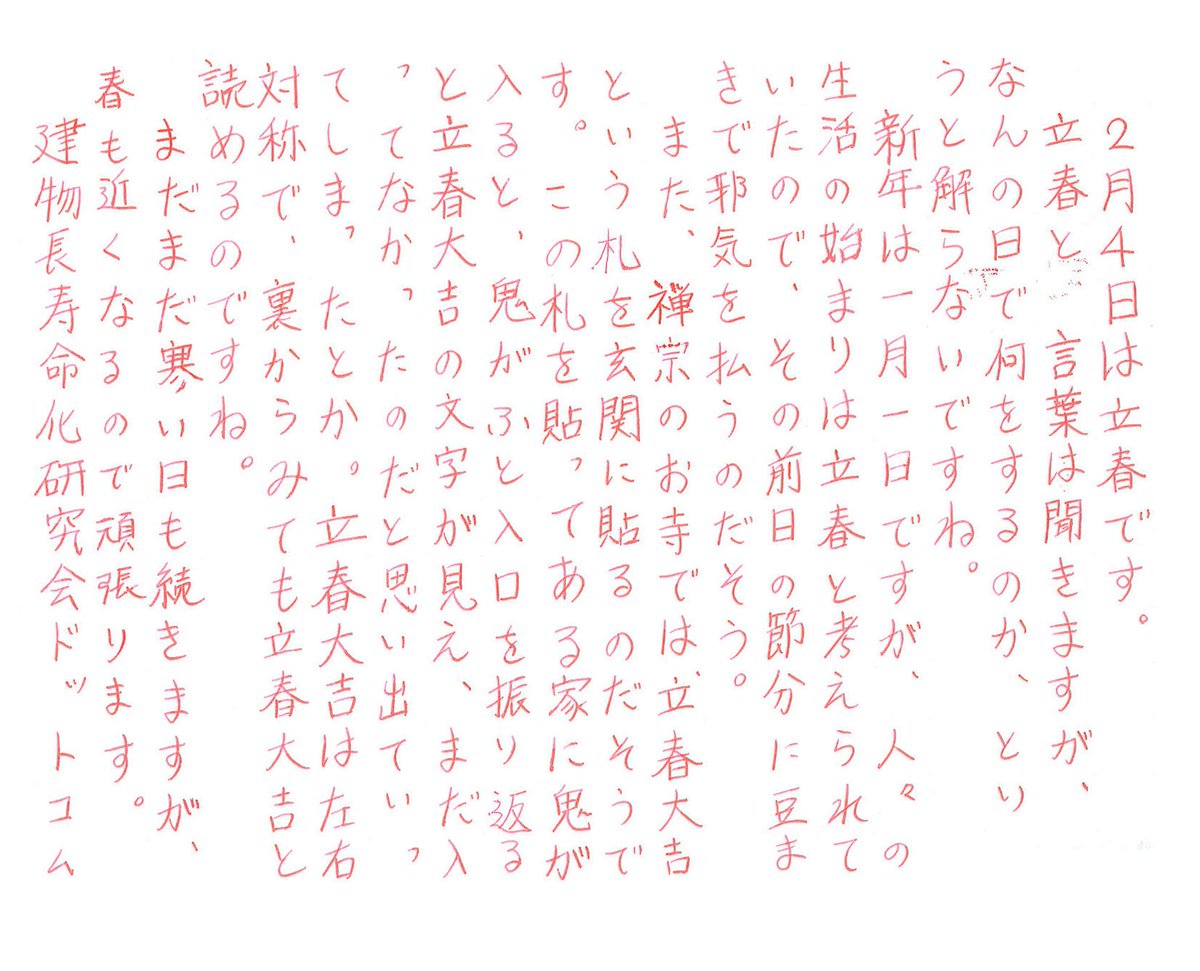 2月4日は立春です。
立春と、言葉は聞きますが、
なんの日で何をするのか、とい
うと解らないですね。
新年は一月一日ですが、人々の
生活の始まりは立春と考えられて
いたので、その前日の節分に豆ま
きで邪気を払うのだそう。
また、禅宗のお寺では、立春大吉
という札を玄関に貼るのだそうで
す。この札を貼ってある家に鬼が
入ると、鬼がふと入口を振り返る
と立春大吉の文字が見え、まだ入
ってなかったのだと思い出ていっ
てしまったとか。立春大吉は左右
対称で、裏からみても立春大吉と
読めるのですね。
まだまだ寒い日も続きますが、
春も近くなるので頑張ります。
建物長寿命化研究会ドットコム